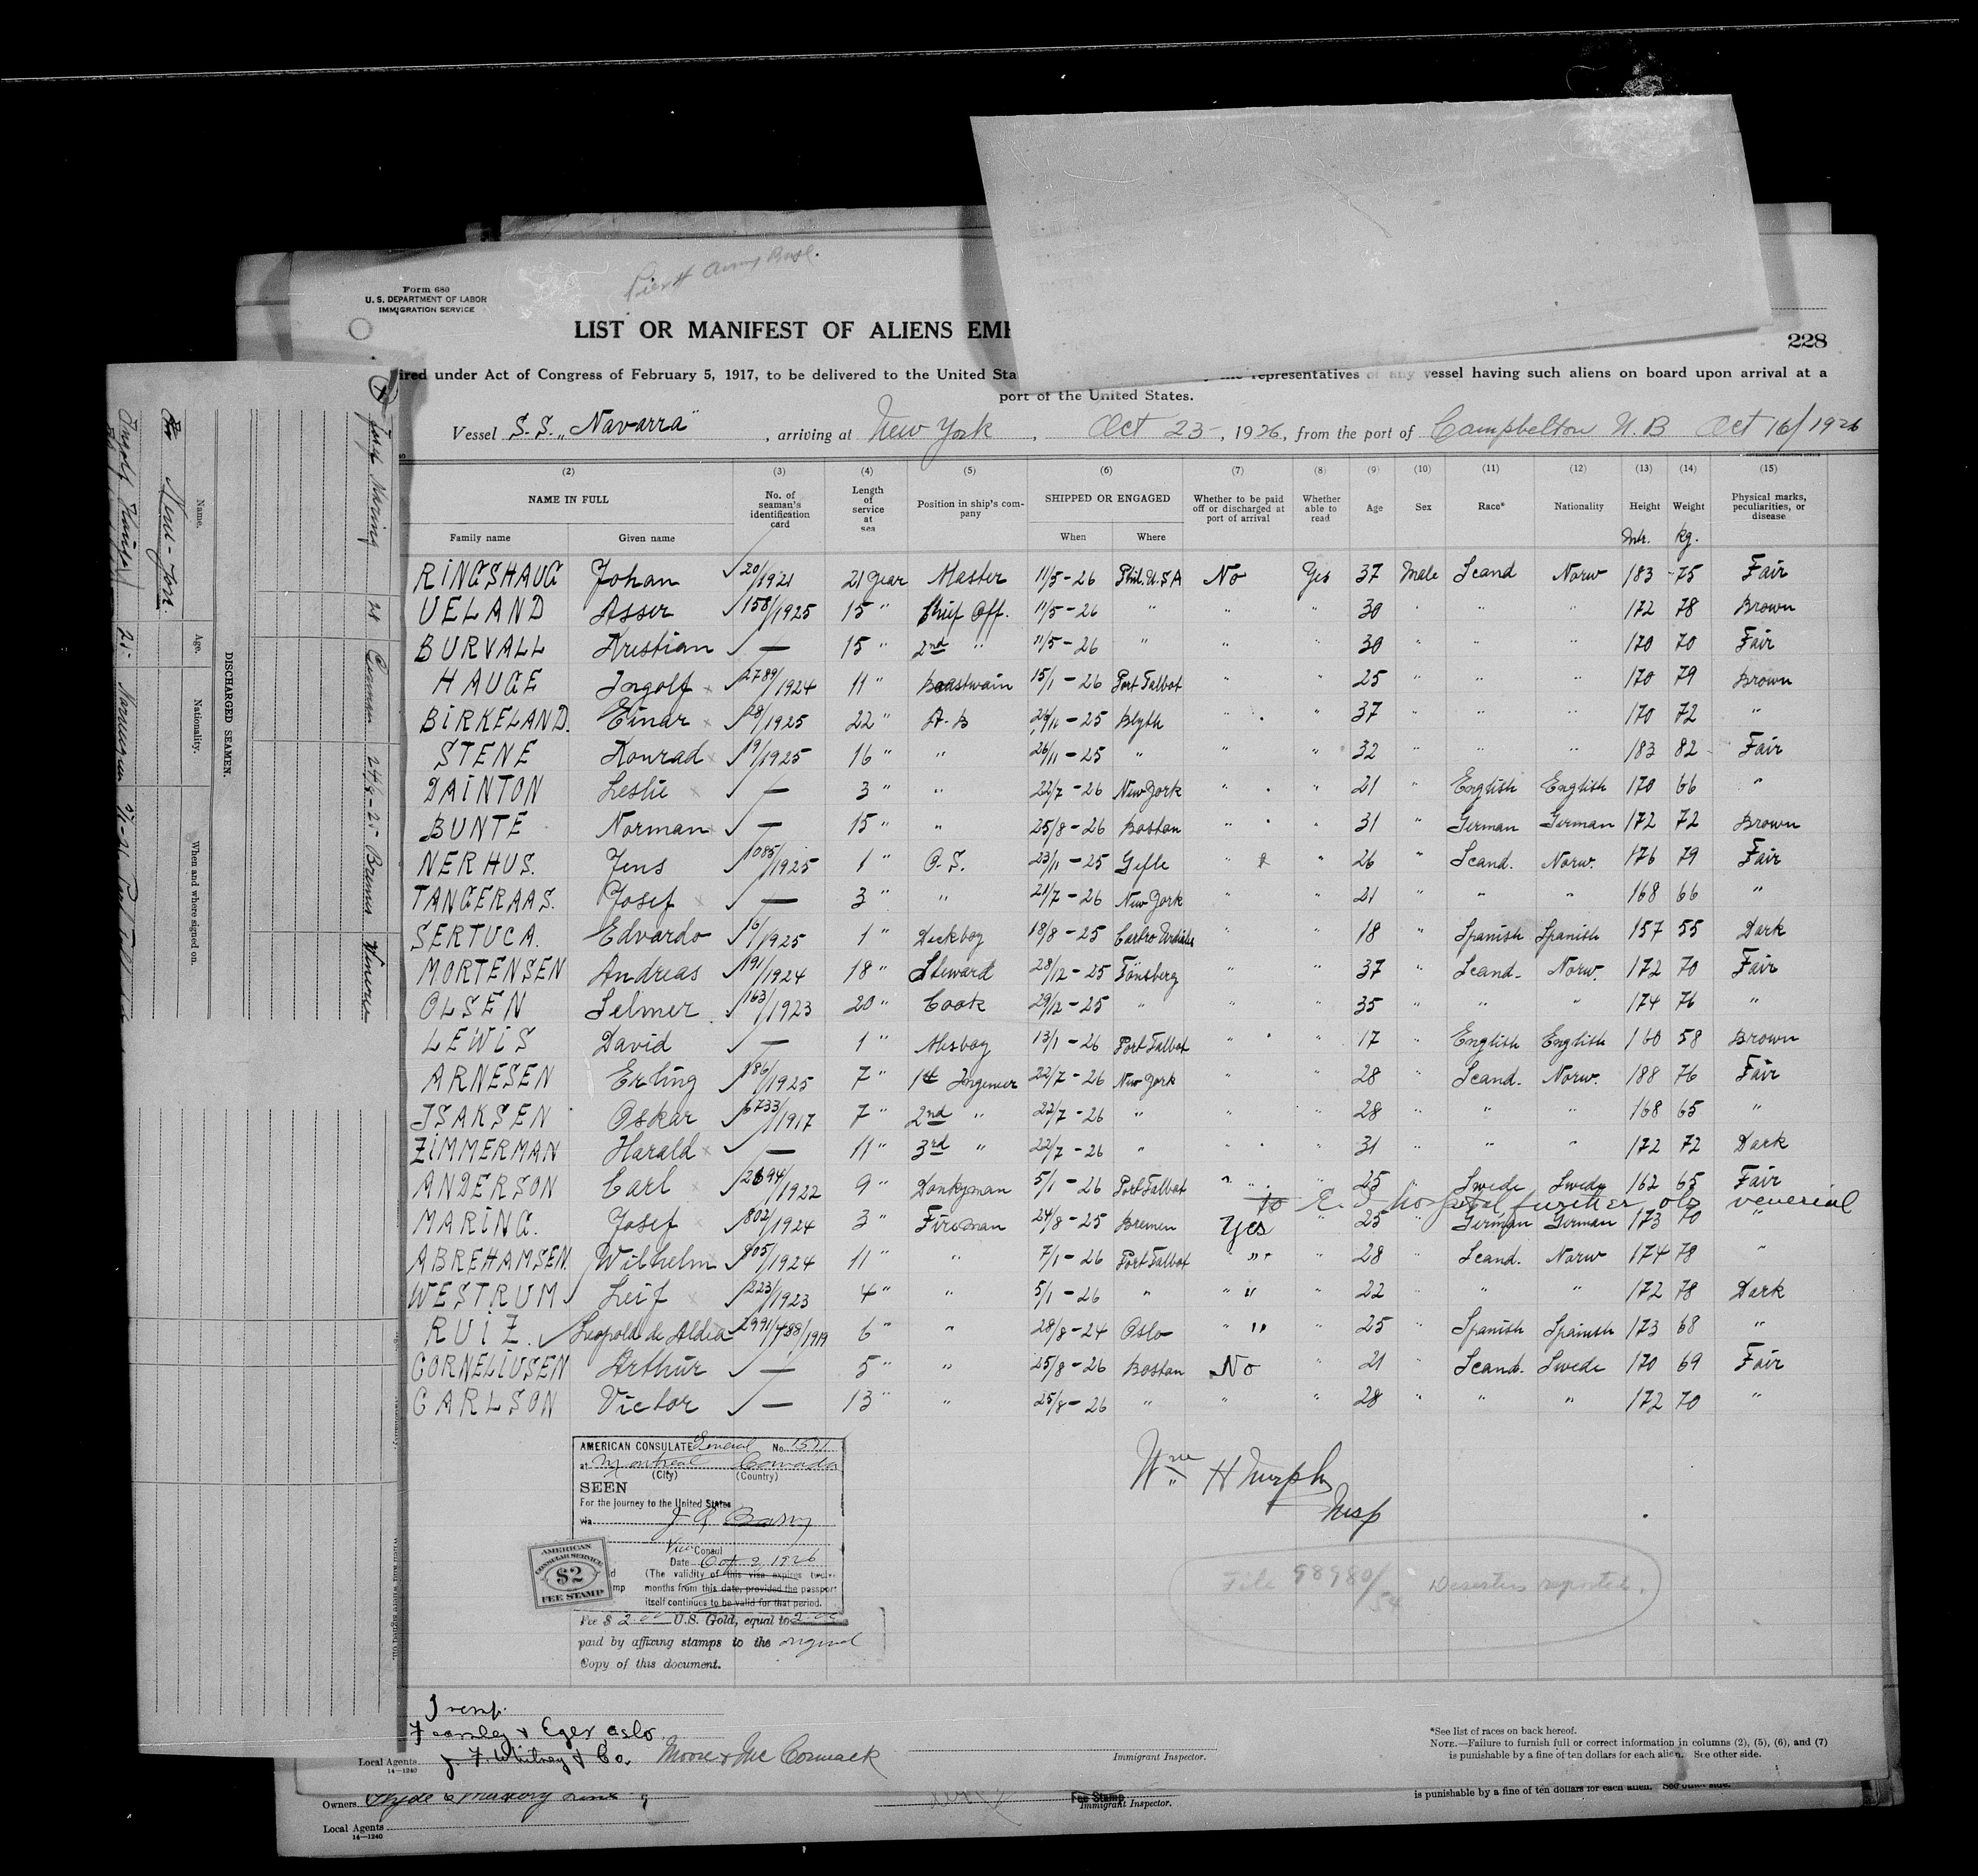 Pier 4 Army Base.
Form 680
U. S. DEPARTMENT OF LABOR
IMMIGRATION SERVICE
LIST OR MANIFEST OF ALIENS EM
228
ired under Act of Congress of February 5, 1917, to be delivered to the United Sta representatives of any vessel having such aliens on board upon arrival at a
port of the United States.
Vessel S.S. „Navarra" , arriving at New York , Oct 23 , 1926, from the port of Campbelton N.B Oct 16/1926
(2) (3) (4) (5) (6) (7) (8) (9) (10) (11) (12) (13) (14) (15)
NAME IN FULL No. of seaman's identification card Length of service at sea Position in ship's company SHIPPED OR ENGAGED Whether to be paid off or discharged at port of arrival Whether able to read Age Sex Race* Nationality Height Weight Physical marks, peculiarities, or disease
Family name Given name When Where Mtr. Kg.
RINGSHAUG Johan 20/1921 21 Year Master 11/5-26 Phil. U.S.A No Yes 37 Male Scand Norw 183 75 Fair
UELAND Asser 158/1925 15 " Chief Off. 11/5-26 " " " 30 " " " 172 78 Brown
BURVALL Kristian — 15 " 2nd " 11/5-26 " " " 30 " " " 170 70 Fair
HAUGE Ingolf 2789/1924 11 " Boastwain 15/1-26 Port Talbot " " 25 " " " 170 79 Brown
BIRKELAND. Einar 28/1925 22 " A-B 26/11-25 Blyth " " 37 " " " 170 72 "
STENE Konrad 19/1925 16 " " 26/11-25 " " " 32 " " " 183 82 Fair
DAINTON Leslie — 3 " " 22/7-26 New York " " 21 " English English 170 66 "
BUNTE Norman — 15 " " 25/8-26 Boston " " 31 " German German 172 72 Brown
NERHUS. Jens 1085/1925 1 " O.S. 23/11-25 Gefle " " 26 " Scand. Norw. 176 79 Fair
TANGERAAS. Josef — 3 " " 21/7-26 New York " " 21 " " " 168 66 "
SERTUCA. Edvardo 6/1925 1 " Deckboy 18/8-25 Castro Urdiales " " 18 " Spanish Spanish 157 55 Dark
MORTENSEN Andreas 191/1924 18 " Steward 28/12-25 Tönsberg " " 37 " Scand. Norw. 172 70 Fair
OLSEN Selmer 163/1923 20 " Cook 29/12-25 " " " 35 " " " 174 76 "
LEWIS David — 1 " Mesboy 13/1-26 Port Talbot " " 17 " English English 160 58 Brown
ARNESEN Erling 186/1925 7 " 1st Ingenieer 22/7-26 New York " " 28 " Scand. Norw. 188 76 Fair
ISAKSEN Oskar 6733/1917 7 " 2nd " 22/7-26 " " " 28 " " " 168 65 "
ZIMMERMAN Harald — 11 " 3rd " 22/7-26 " " " 31 " " " 172 72 Dark
ANDERSON Carl 2694/1922 9 " Donkyman 5/1-26 Port Talbot " " 25 " Swede Swede 162 65 Fair
to E. I. hospital further obs venerial
MARING. Josef 802/1924 3 " Fireman 24/8-25 Bremen Yes " 25 " German German 173 70 "
ABREHAMSEN. Wilhelm 805/1924 11 " " 7/1-26 Port Talbot " " 28 " Scand. Norw 174 78 "
WESTRUM Leif 223/1923 4 " " 5/1-26 " " " 22 " " " 172 78 Dark
RUIZ Leopold de Aldea 2991/488/1919 6 " " 28/8-24 Oslo " " 25 " Spanish Spainish 173 68 "
CORNELIUSEN Arthur — 5 " " 25/8-26 Boston No " 21 " Scand. Swede 170 69 Fair
CARLSON Victor — 13 " " 25/8-26 " " " 28 " " " 172 70 "
AMERICAN CONSULATE General No. 1571
at Montreal Canada
(City) (Country)
SEEN
For the journey to the United States
via
Vice Consul
Date Oct 2 1926
(The validity of this visa expires twelve
months from this date, provided the passport
itself continues to be valid for that period.
AMERICAN
CONSULAR SERVICE
$2
FEE STAMP
Fee $ 2.00 U.S. Gold, equal to 2.00
paid by affixing stamps to the original
Copy of this document.
Wm H Murphy
Insp
File 98980/54 Deserters reported.
Fearnley & Eger Oslo
Local Agents J. F. Whitney & Co. Moore & Mc Cormack
14—1240
Immigrant Inspector.
*See list of races on back hereof.
NOTE.—Failure to furnish full or correct information in columns (2), (5), (6), and (7)
is punishable by a fine of ten dollars for each alien. See other side.
Owners Clyde & Mallory Line
Local Agents
14—1240
Fee Stamp
Immigrant Inspector.
is punishable by a fine of ten dollars for each alien. See other side.
DISCHARGED SEAMEN.
Name. Age. Nationality. When and where signed on.
Josef Maring 25 German 24/8-25 Bremen Venerial